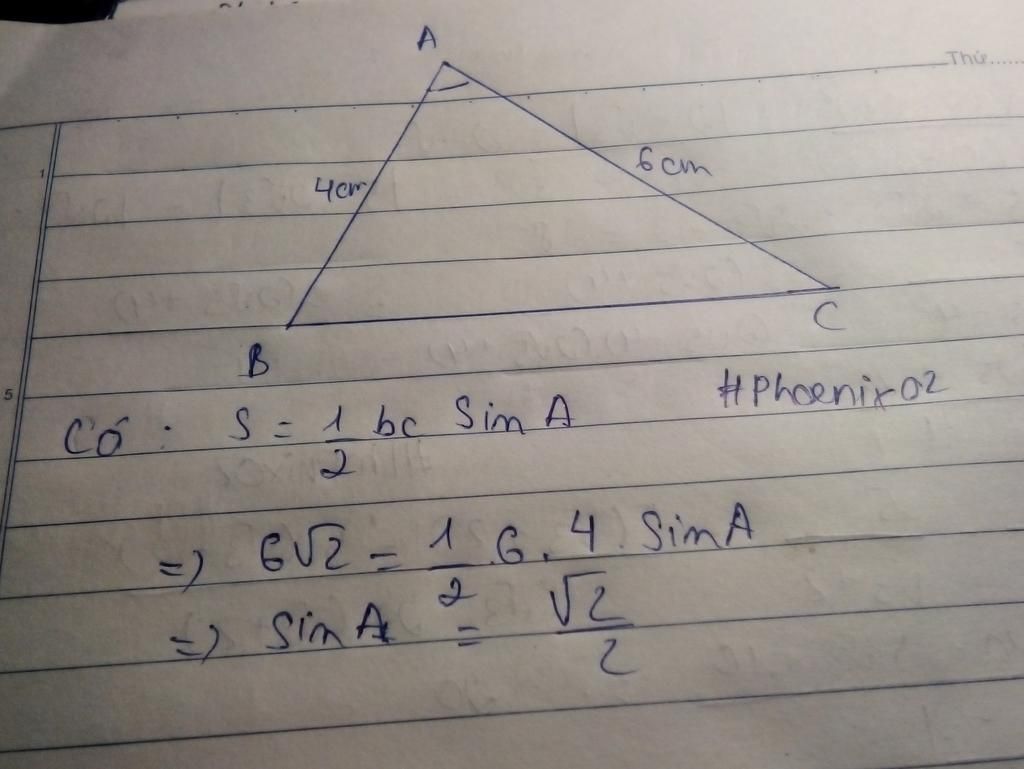 Thứ......
A
4cm
6cm
B
C
1
5
#Phoenix02
Có : S = 1/2 bc Sin A
=> 6√2 = 1/2 . 6 . 4 . Sin A
=> Sin A = √2/2